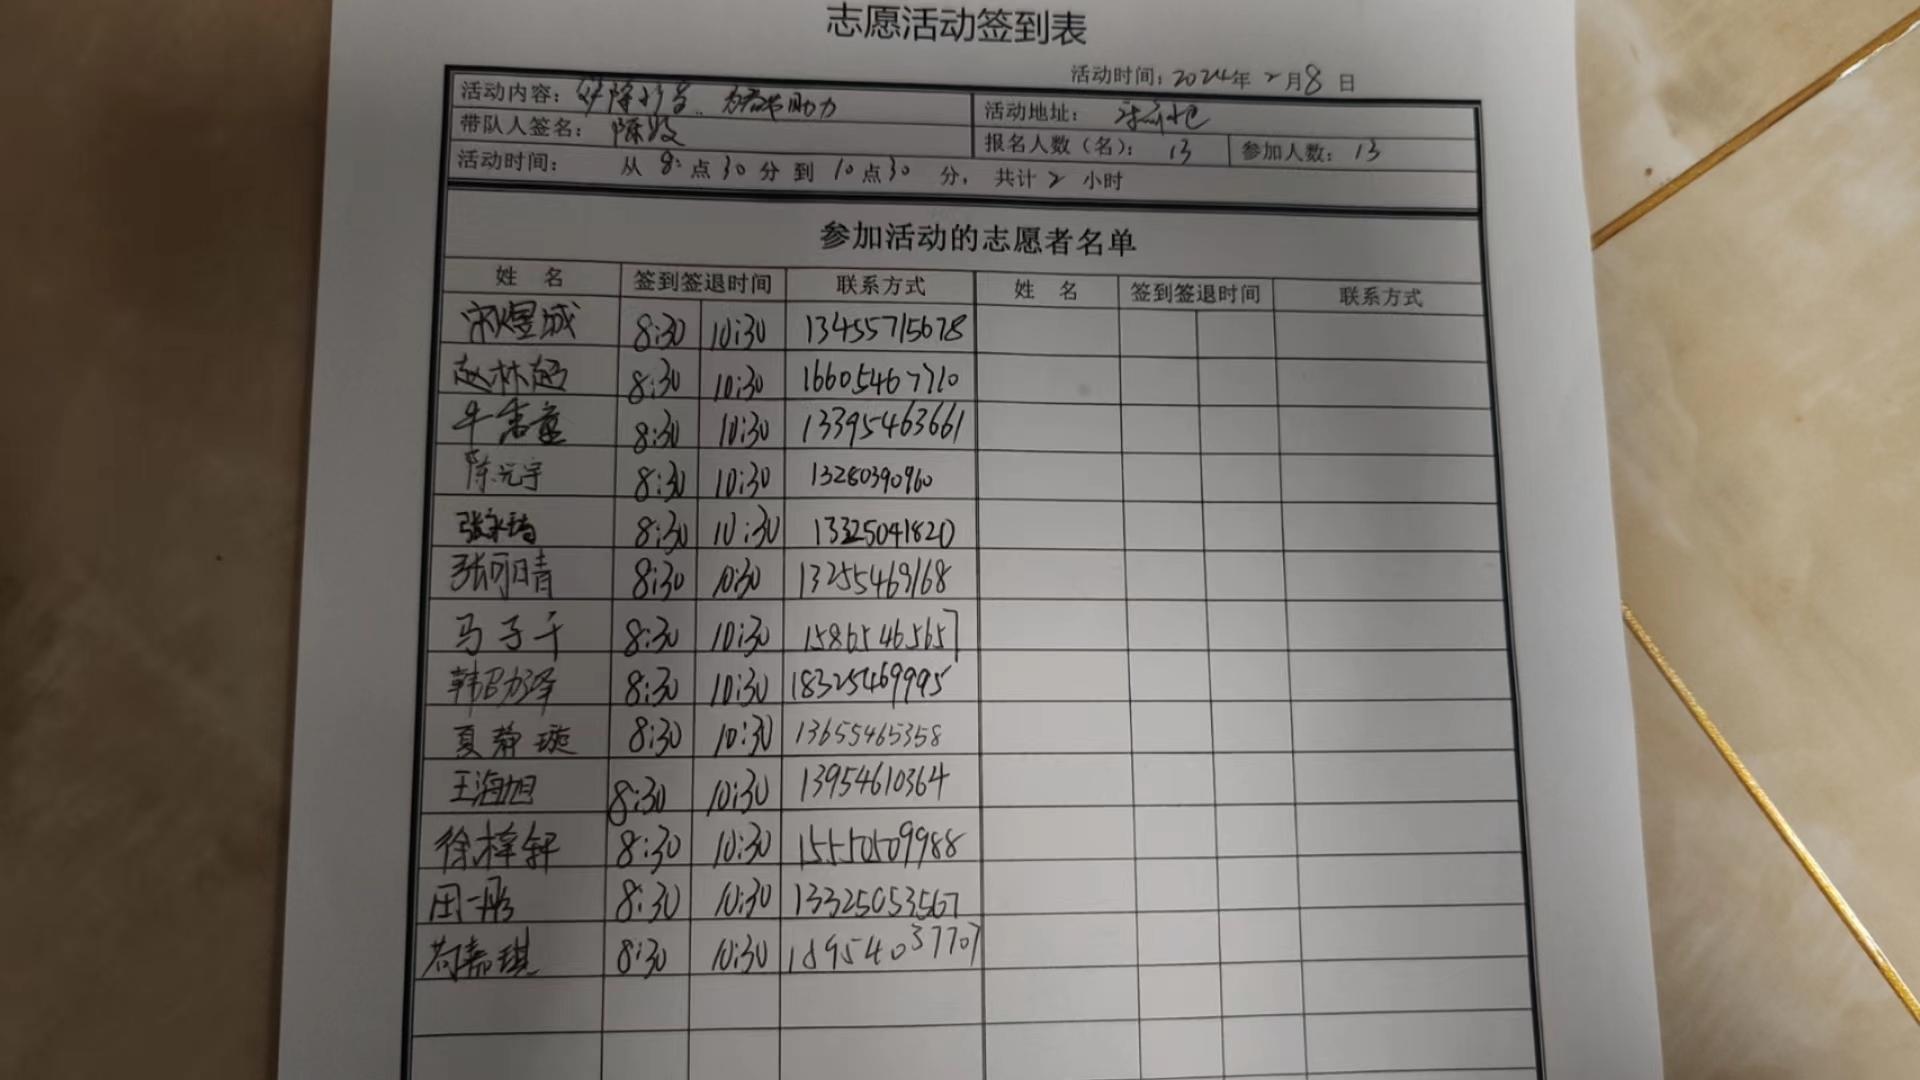 志愿活动签到表
活动时间：2024年2月8日
活动内容： 为春节助力 活动地址：
带队人签名：陈 报名人数（名）：13 参加人数：13
活动时间： 从8:点30分到10点30分，共计2小时
参加活动的志愿者名单
姓 名 签到签退时间 联系方式 姓 名 签到签退时间 联系方式
宋煜城 8:30 10:30 13455715678
赵林 8:30 10:30 16605467710
牛 童 8:30 10:30 13395463661
陈元宇 8:30 10:30 13280390960
张 8:30 10:30 13325041820
张可晴 8:30 10:30 13255469168
马子千 8:30 10:30 15865465657
韩劭泽 8:30 10:30 18325469995
夏静璇 8:30 10:30 13655465358
王海旭 8:30 10:30 13954610364
徐梓轩 8:30 10:30 15550509988
田一彤 8:30 10:30 13325053567
苟嘉琪 8:30 10:30 18954037707